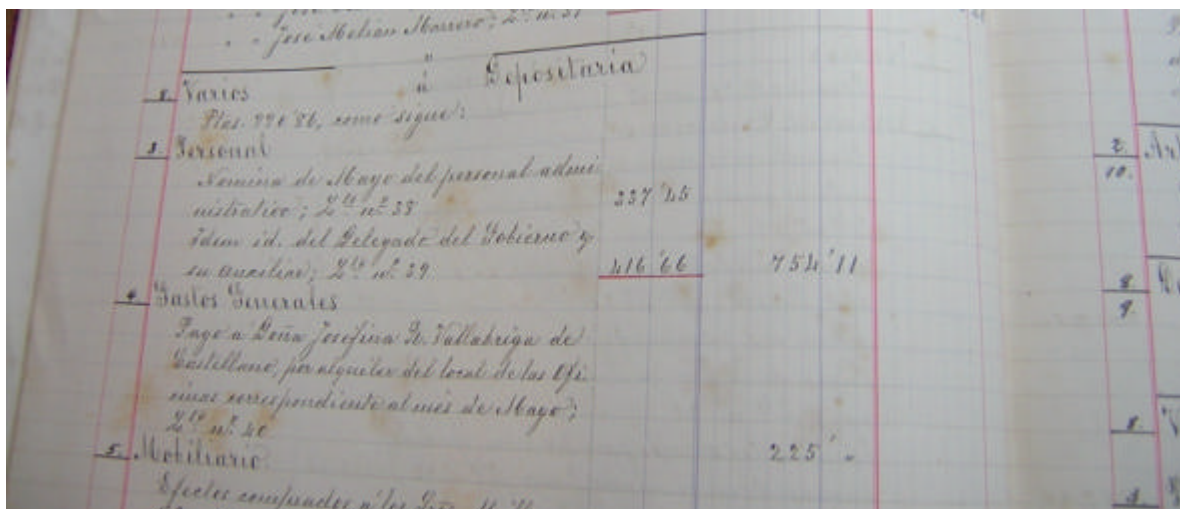 José Melian Marrero; Lto nº 37
Varios a Depositaria
Ptas. 990'86, como sigue:
3 Personal
Nomina de Mayo del personal admi-
nistrativo; Lto nº 38 337'45
Idem id. del Delegado del Gobierno y
su auxiliar; Lto nº 39 416'66 754'11
4 Gastos Generales
Pago a Doña Josefina G. Vallabriga de
Castellano, por alquiler del local de las Ofi-
cinas correspondiente al mes de Mayo;
Lto nº 40 225'"
5 Mobiliario
Efectos comprados a los Sres.
2 Ar
10.
8
9.
8.